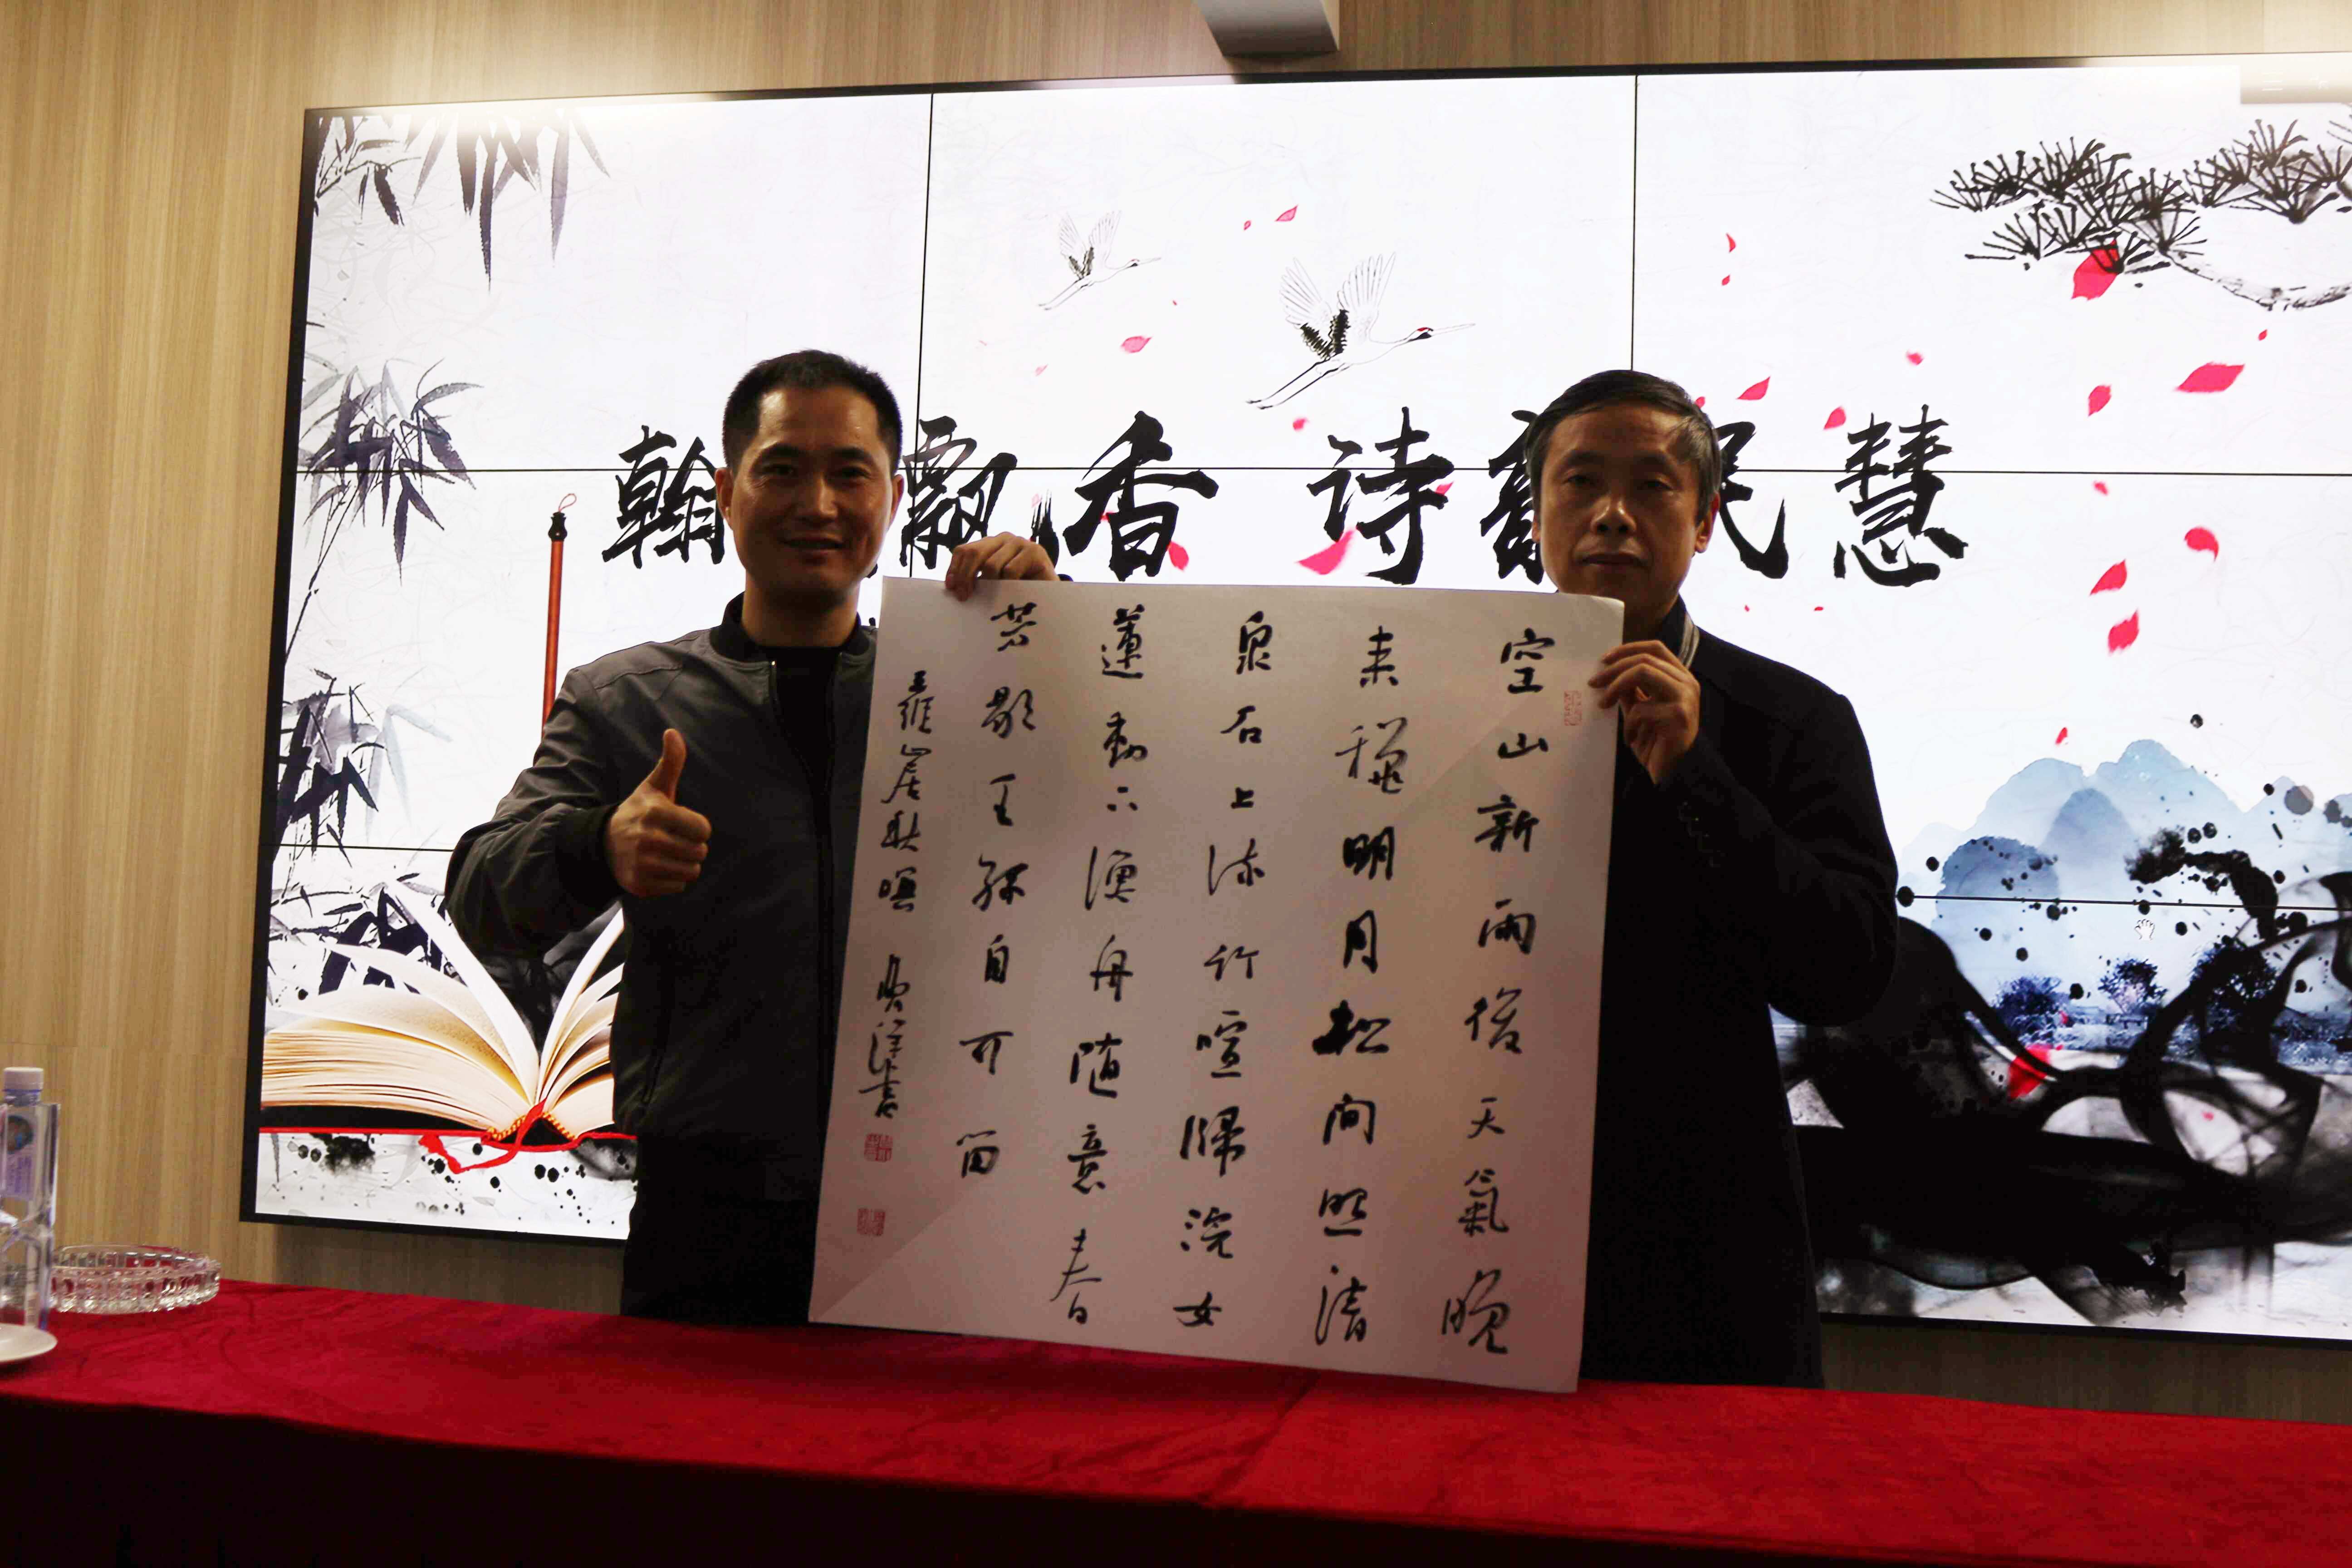 翰飘香 诗韵民慧
空山新雨後天氣晚
来穐明月松间照清
泉石上流竹喧歸浣女
蓮動下漁舟随意春
芳歇王孫自可留
王維山居秋暝 書